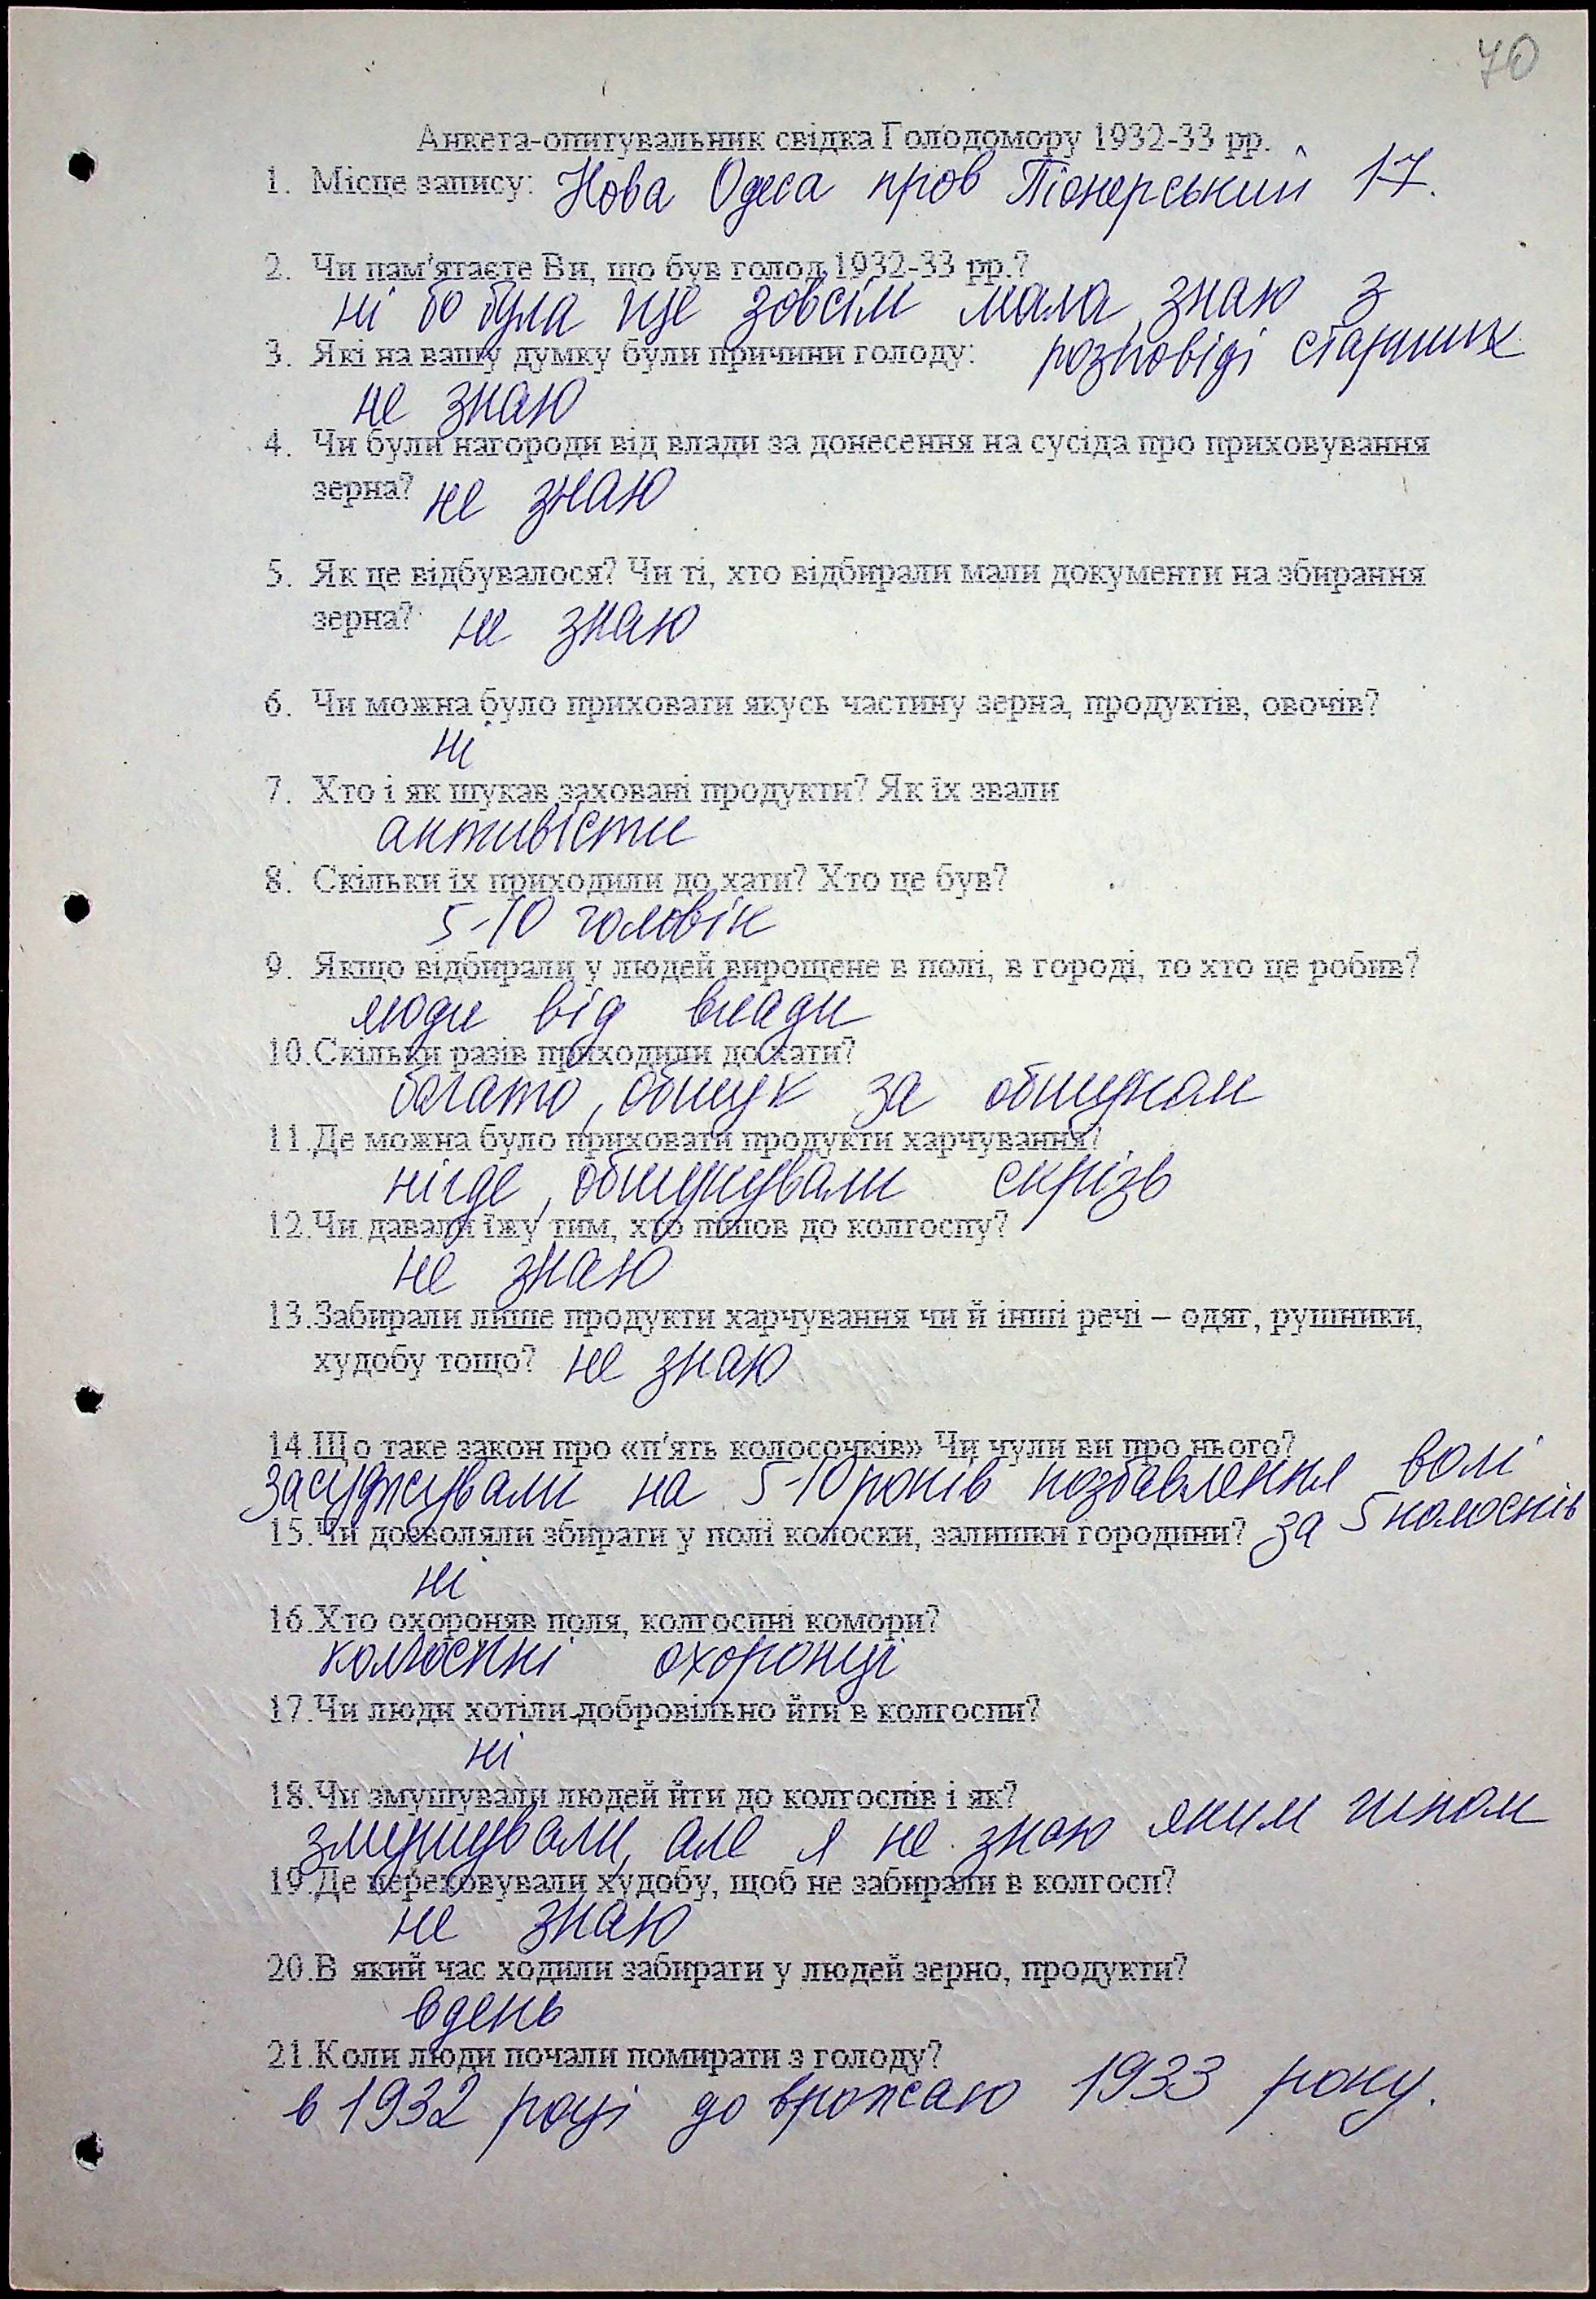 70
Анкета-опитувальник свідка Голодомору 1932-33 рр.
1. Місце запису: Нова Одеса пров Піонерський 17.
2. Чи пам'ятаєте Ви, що був голод 1932-33 рр.?
ні бо була ще зовсім мала, знаю з
розповіді старших
3. Які на вашу думку були причини голоду:
не знаю
4. Чи були нагороди від влади за донесення на сусіда про приховування
зерна? не знаю
5. Як це відбувалося? Чи ті, хто відбирали мали документи на збирання
зерна? не знаю
6. Чи можна було приховати якусь частину зерна, продуктів, овочів?
ні
7. Хто і як шукав заховані продукти? Як їх звали
активісти
8. Скільки їх приходили до хати? Хто це був?
5-10 чоловік
9. Якщо відбирали у людей вирощене в полі, в городі, то хто це робив?
люди від влади
10.Скільки разів приходили до хати?
багато, обшук за обшуком
11.Де можна було приховати продукти харчування?
нігде, обшукували скрізь
12.Чи давали їжу тим, хто пішов до колгоспу?
не знаю
13.Забирали лише продукти харчування чи й інші речі – одяг, рушники,
худобу тощо? не знаю
14.Що таке закон про «п'ять колосочків» Чи чули ви про нього?
засуджували на 5-10 років позбавлення волі
за 5 колосків
15.Чи дозволяли збирати у полі колоски, залишки городини?
ні
16.Хто охороняв поля, колгоспні комори?
колгоспні охоронці
17.Чи люди хотіли добровільно йти в колгоспи?
ні
18.Чи змушували людей йти до колгоспів і як?
змушували, але я не знаю яким чином
19.Де переховували худобу, щоб не забирали в колгосп?
не знаю
20.В який час ходили забирати у людей зерно, продукти?
вдень
21.Коли люди почали помирати з голоду?
в 1932 році до врожаю 1933 року.